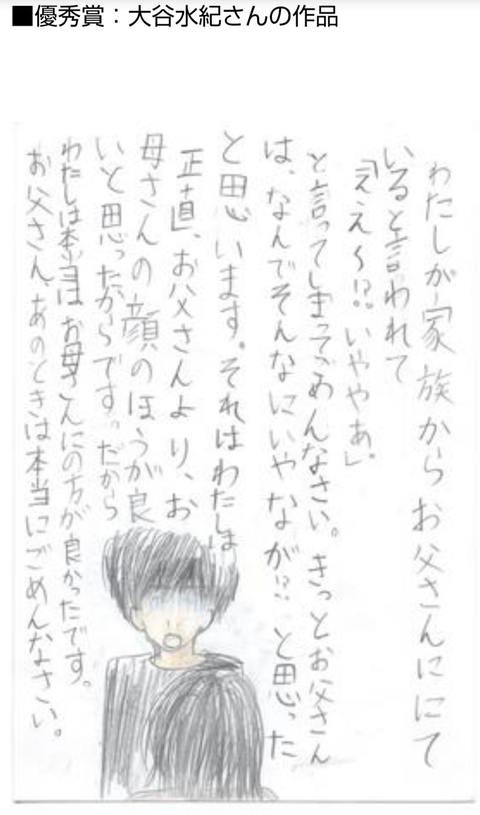 ■優秀賞：大谷水紀さんの作品
わたしが家族からお父さんににて
いると言われて
「ええ〜!?いややぁ」
と言ってしまってごめんなさい。きっとお父さん
は、なんでそんなにいやなが!?と思った
と思います。それはわたしは
正直、お父さんより、お
母さんの顔のほうが良
いと思ったからです。だから
わたしは本当はお母さんにの方が良かったです。
お父さん、あのときは本当にごめんなさい。